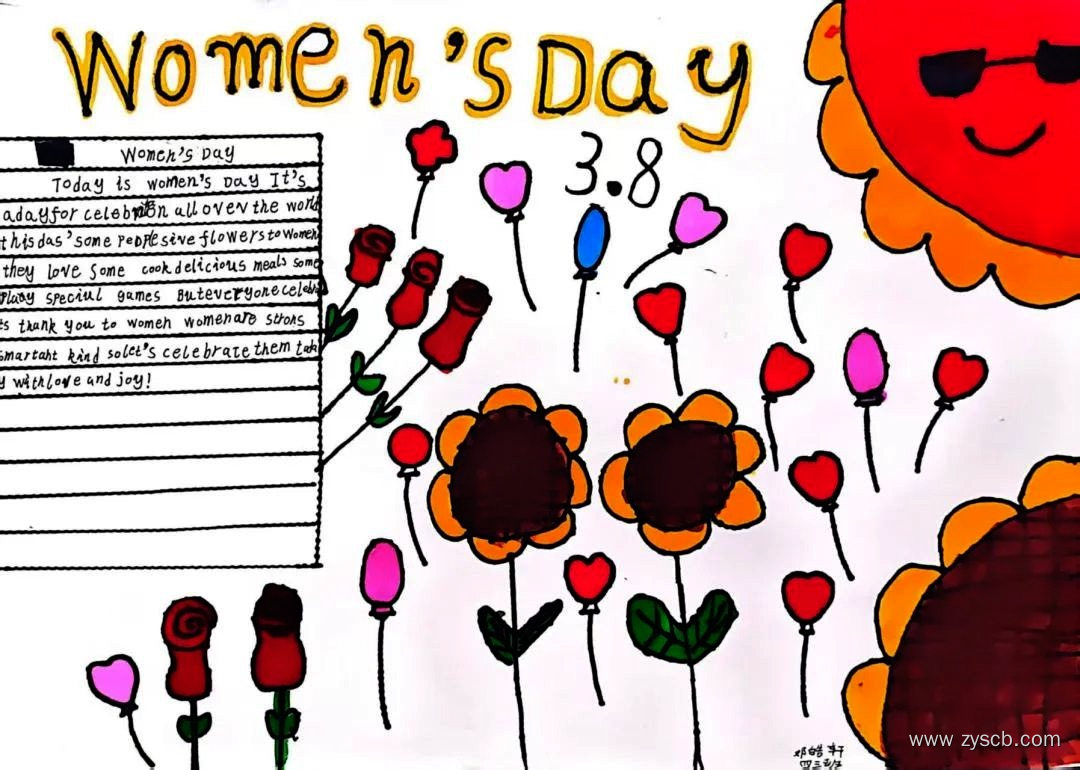 Women's Day
3.8
Women's Day
Today is women's Day It's
a day for celebration all over the world
this das' some PeoPle sive flowers to women
they love Some cook delicious meals some
Play speciul games But everyone celebra
ts thank you to women women are strons
smartaht kind so let's celebrate them tod
y with love and joy!
邓皓轩
四三班
www zyscb.com